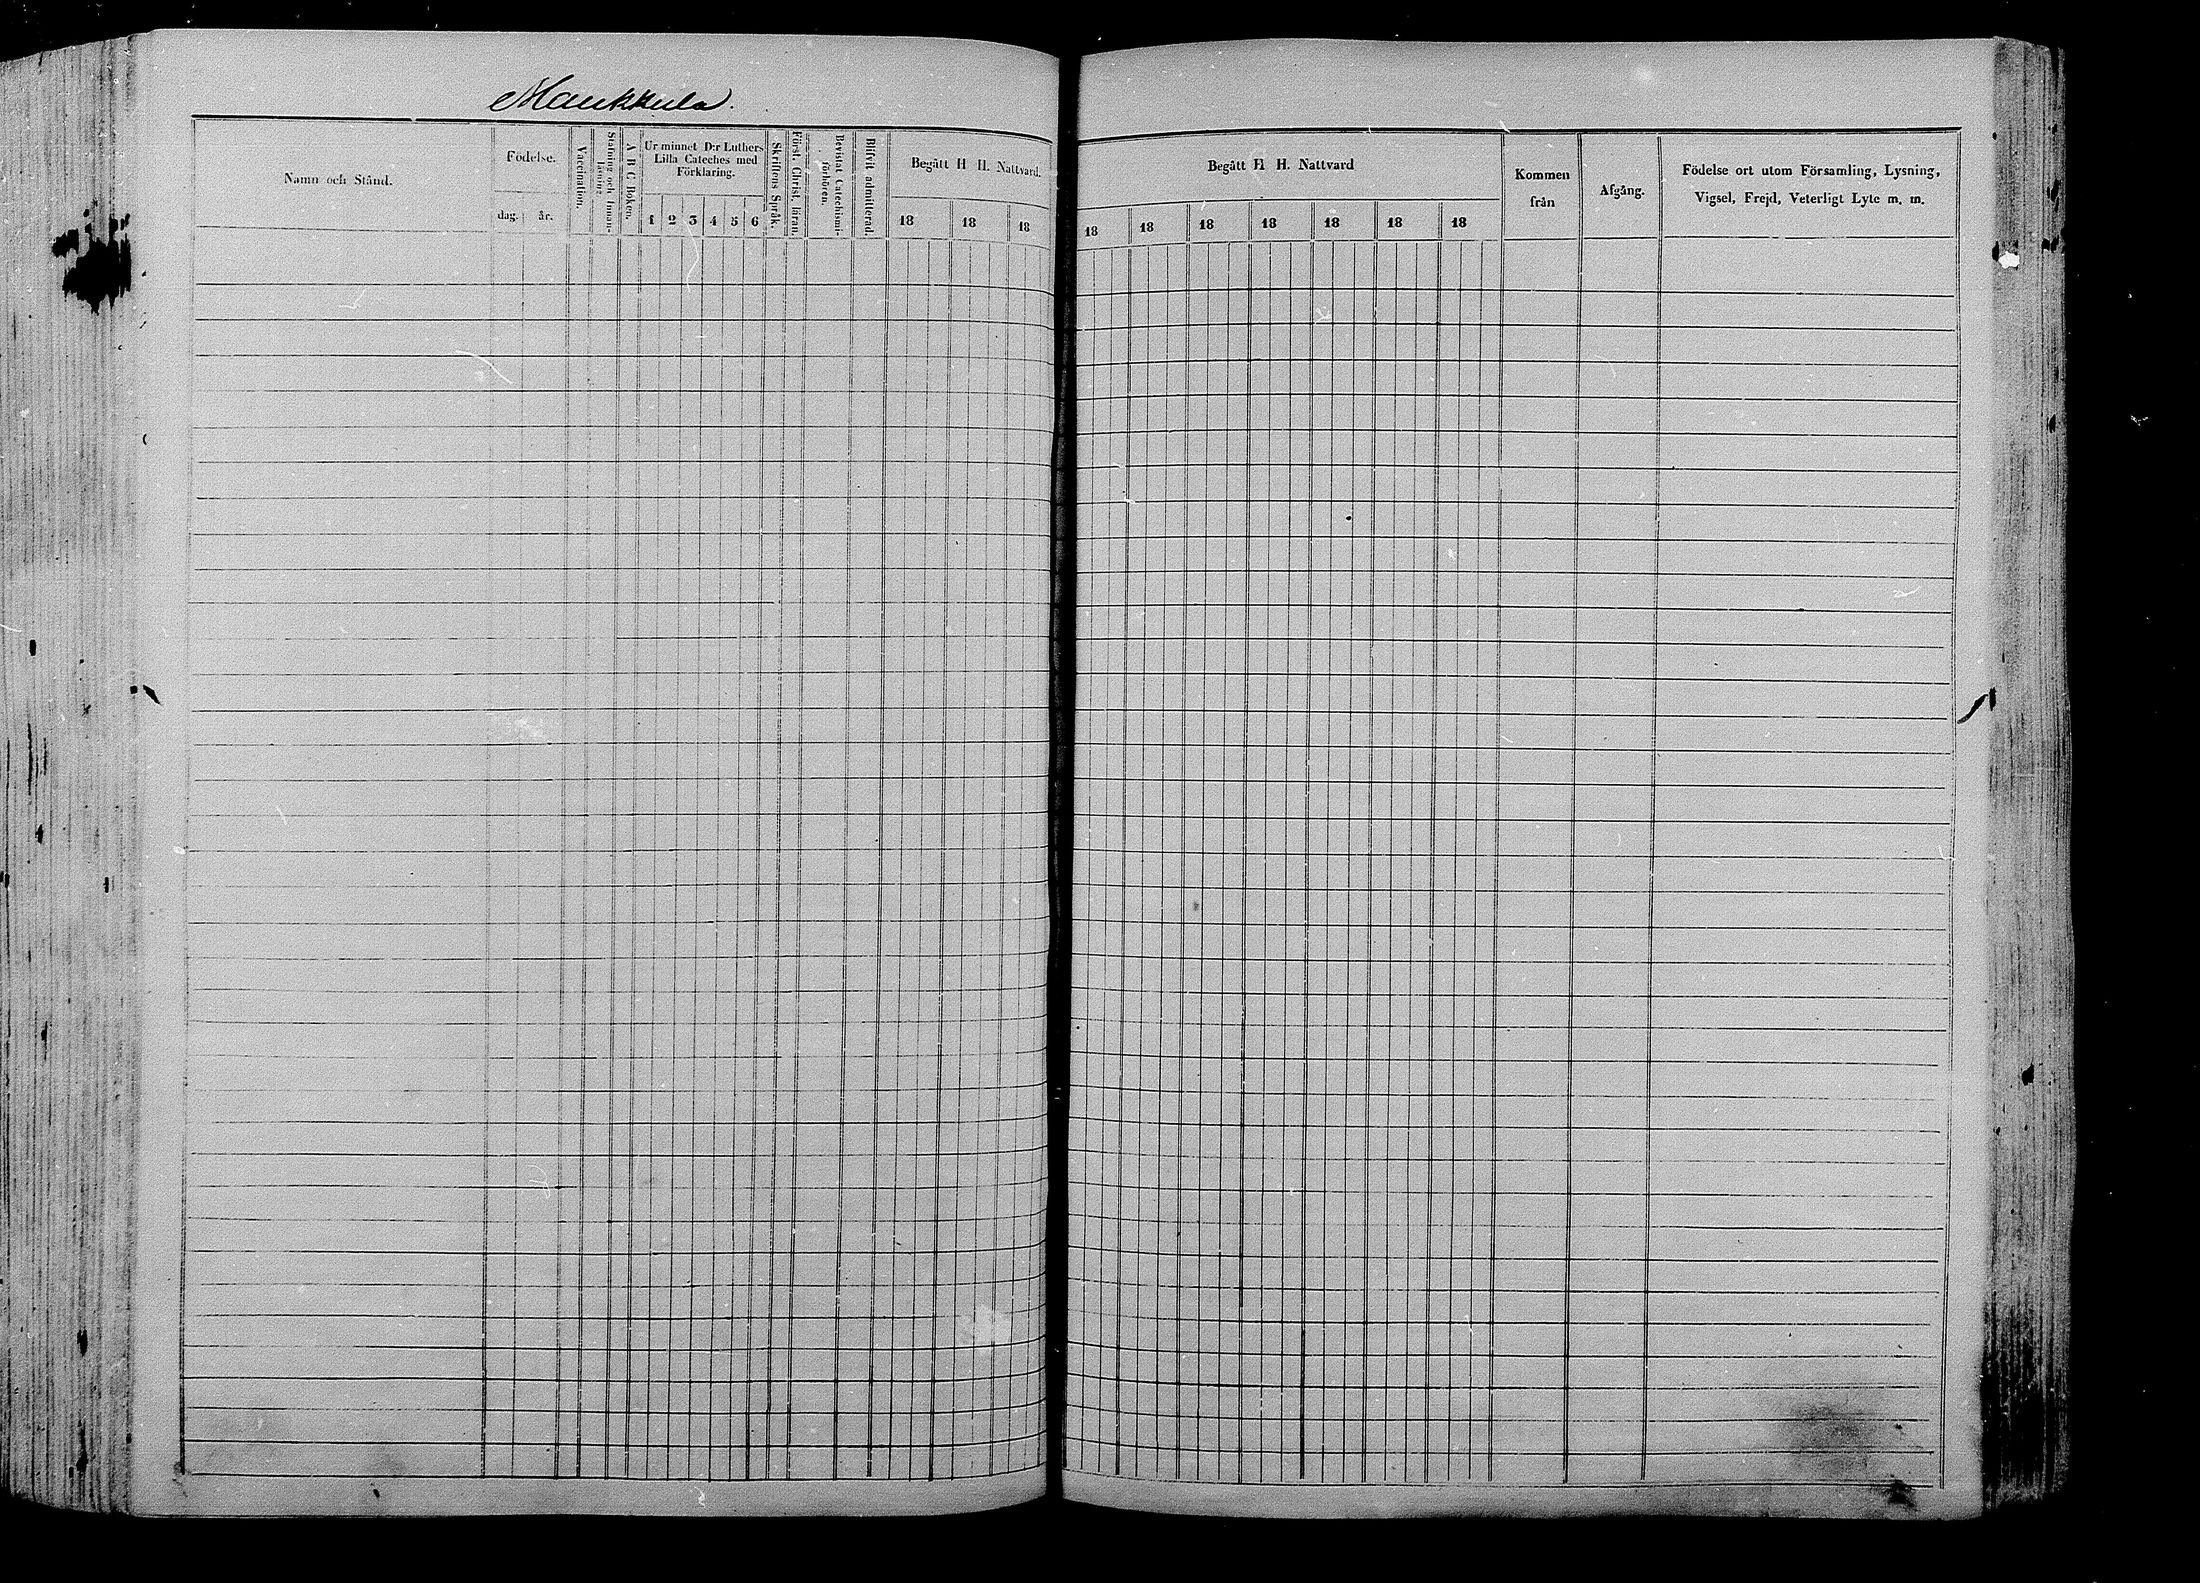 Maukkula.
Namn och Stånd.
Födelse.
dag.
år.
Vaccination.
Stafning och Innan-
läsning
A B C Boken.
Ur minnet D:r Luthers
Lilla Cateches med
Förklaring.
1 2 3 4 5 6
Skriftens Språk.
Först. Christ. läran.
Bevistat Catechismi-
förhören.
Blifvit admitterad.
Begått H H. Nattvard.
18 18 18
Begått H H. Nattvard
18 18 18 18 18 18 18
Kommen
från
Afgång.
Födelse ort utom Församling, Lysning,
Vigsel, Frejd, Veterligt Lyte m. m.